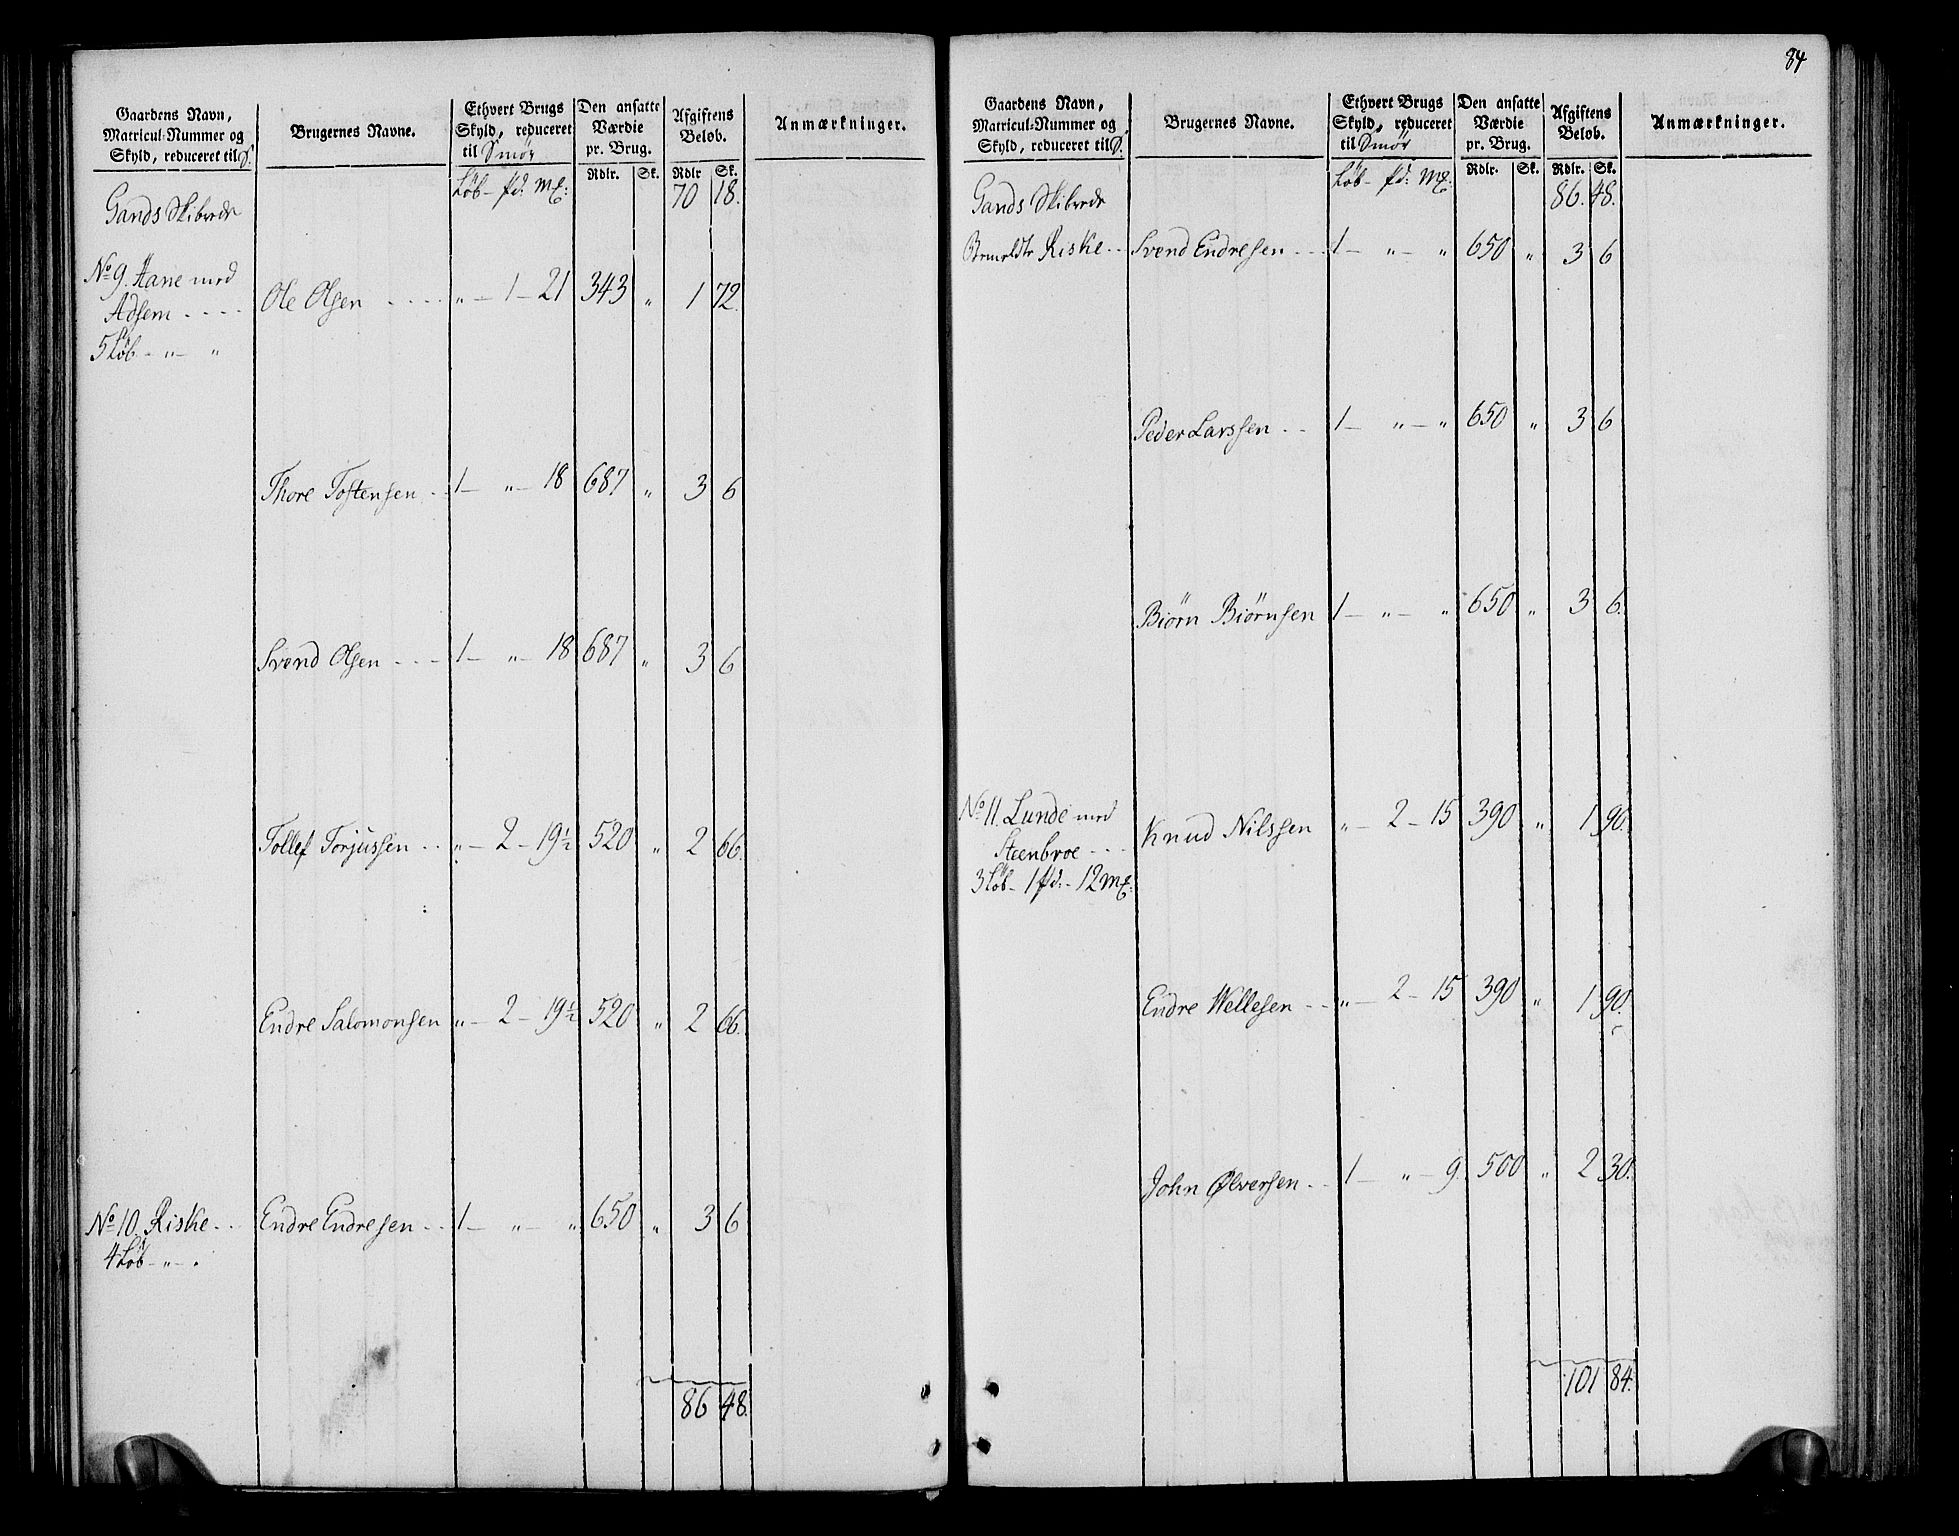 Gaardens Navn,
Matricul-Nummer og
Skyld, reduceret til S.
Brugernes Navne.
Ethvert Brugs
Skyld, reduceret
til Smör
Den ansatte
Værdie
pr. Brug.
Afgiftens
Beløb.
Anmærkninger.
Rdlr. Sk. Rdlr Sk.
Gands Skibrede Löb – pd: Mk: 70 18.
No 9. Hane med
Adsem - - - - Ole Olsen - - - - " – 1 – 21 343 " 1 72.
5 Löb - " – "
Thore Tostensen - - 1 – " – 18 687 " 3 6
Svend Olsen - - - 1 – " – 18 687 " 3 6
Tollef Torjussen - - " – 2 – 19½ 520 " 2 66.
Endre Salomonsen " – 2 – 19½ 520 " 2 66.
No 10. Riske - - Endre Endresen - - 1 – " – " 650 " 3 6
4 Löb - " - .
86 48.
84
Gaardens Navn,
Matricul-Nummer og
Skyld, reduceret til S.
Brugernes Navne.
Ethvert Brugs
Skyld, reduceret
til Smör
Den ansatte
Værdie
pr. Brug.
Afgiftens
Beløb.
Anmærkninger.
Rdlr. Sk. Rdlr. Sk.
Gands Skibrede Löb – pd: Mk: 86. 48.
Riske - - Svend Endresen - - - 1 – " – " 650 " 3 6
Peder Larssen - - 1 – " – " 650 " 3 6
Biörn Biörnsen 1 – " – " 650 " 3 6.
No 11. Lunde med
Steenbroe - - - Knud Nilssen " – 2 – 15 390 " 1 90.
3 Löb - 1 pd: - 12 Mk:
Endre Wellesen - - " – 2 – 15 390 " 1 90.
John Ølversen - - 1 – " – 9. 500 " 2 30.
101 84.